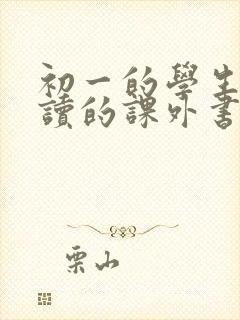 初一的學生
讀的課外書
栗山